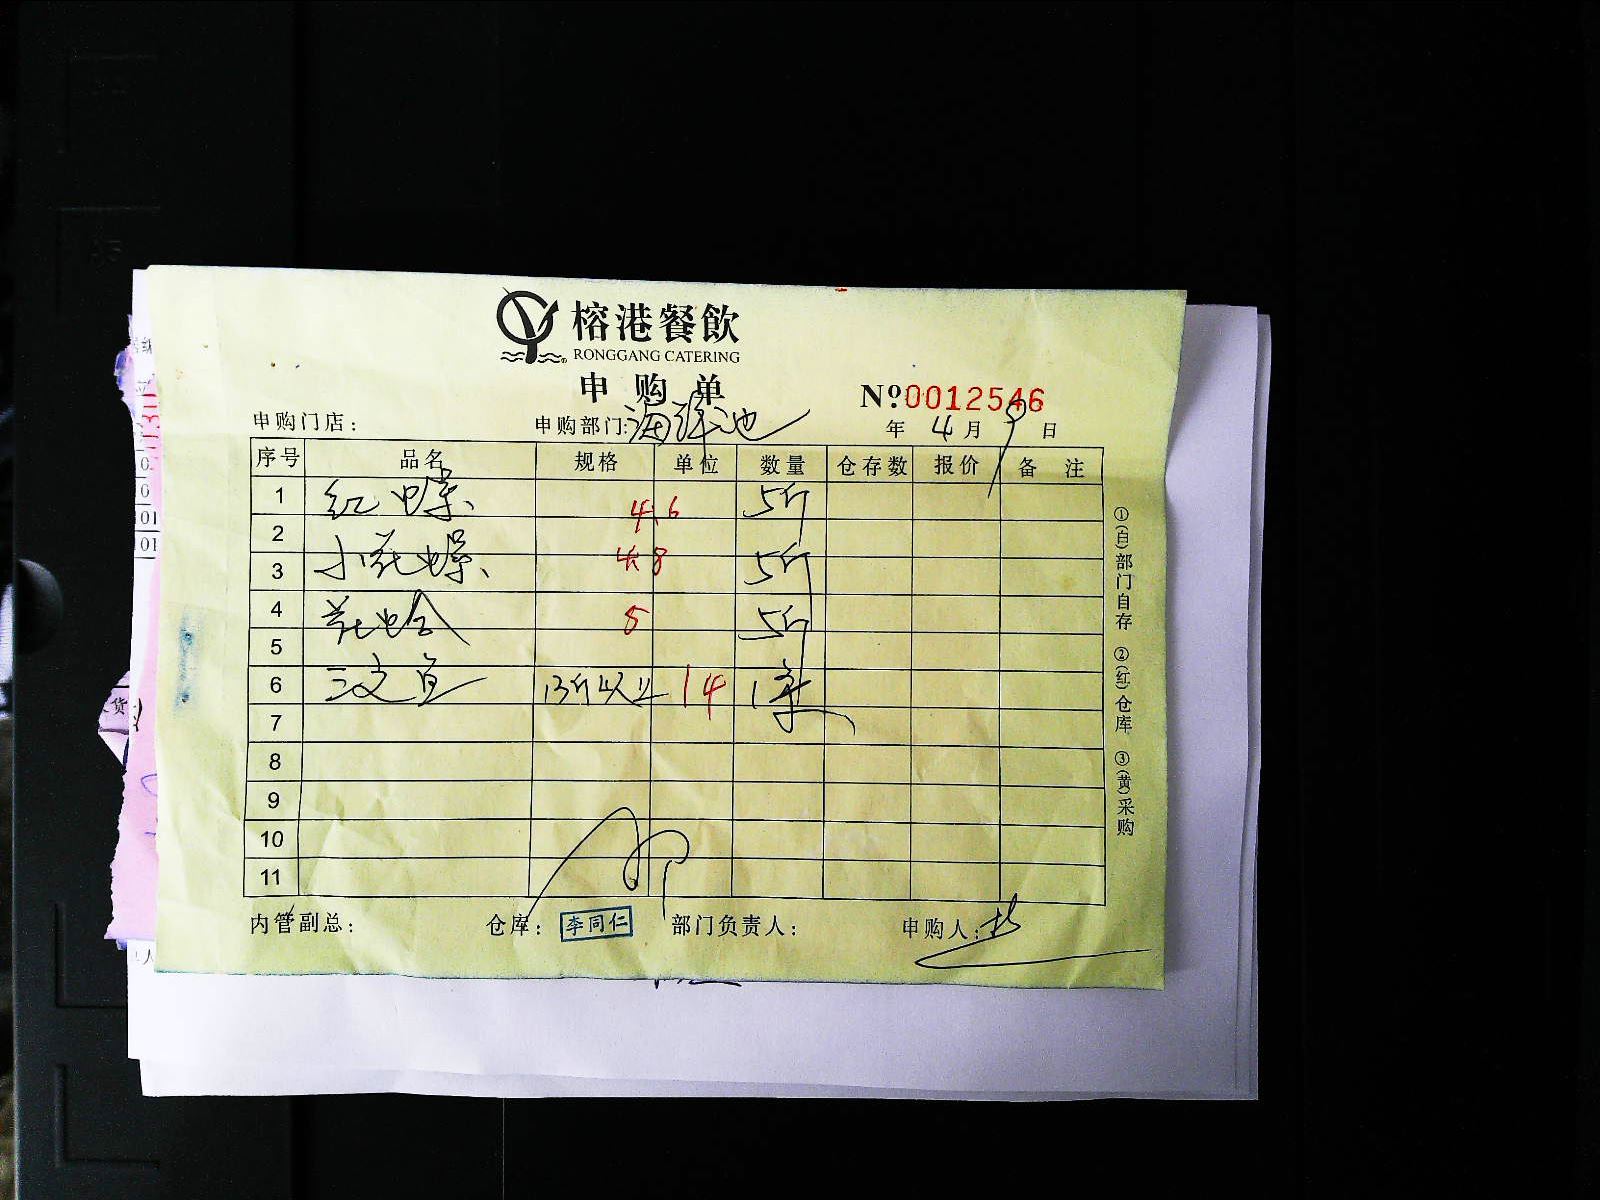 榕港餐飲
RONGGANG CATERING
申购单
№0012546
申购门店： 申购部门：海鲜池 年 4 月 9 日
序号 品名 规格 单位 数量 仓存数 报价 备注
1 红螺 4.6 5斤
2
3 小花螺 48 5斤
4 花蛤 8 5斤
5
6 三文鱼 13斤以上 14 1条
7
8
9
10
11
内管副总： 仓库：李同仁 部门负责人： 申购人：
①(白)部门自存 ②(红)仓库 ③(黄)采购